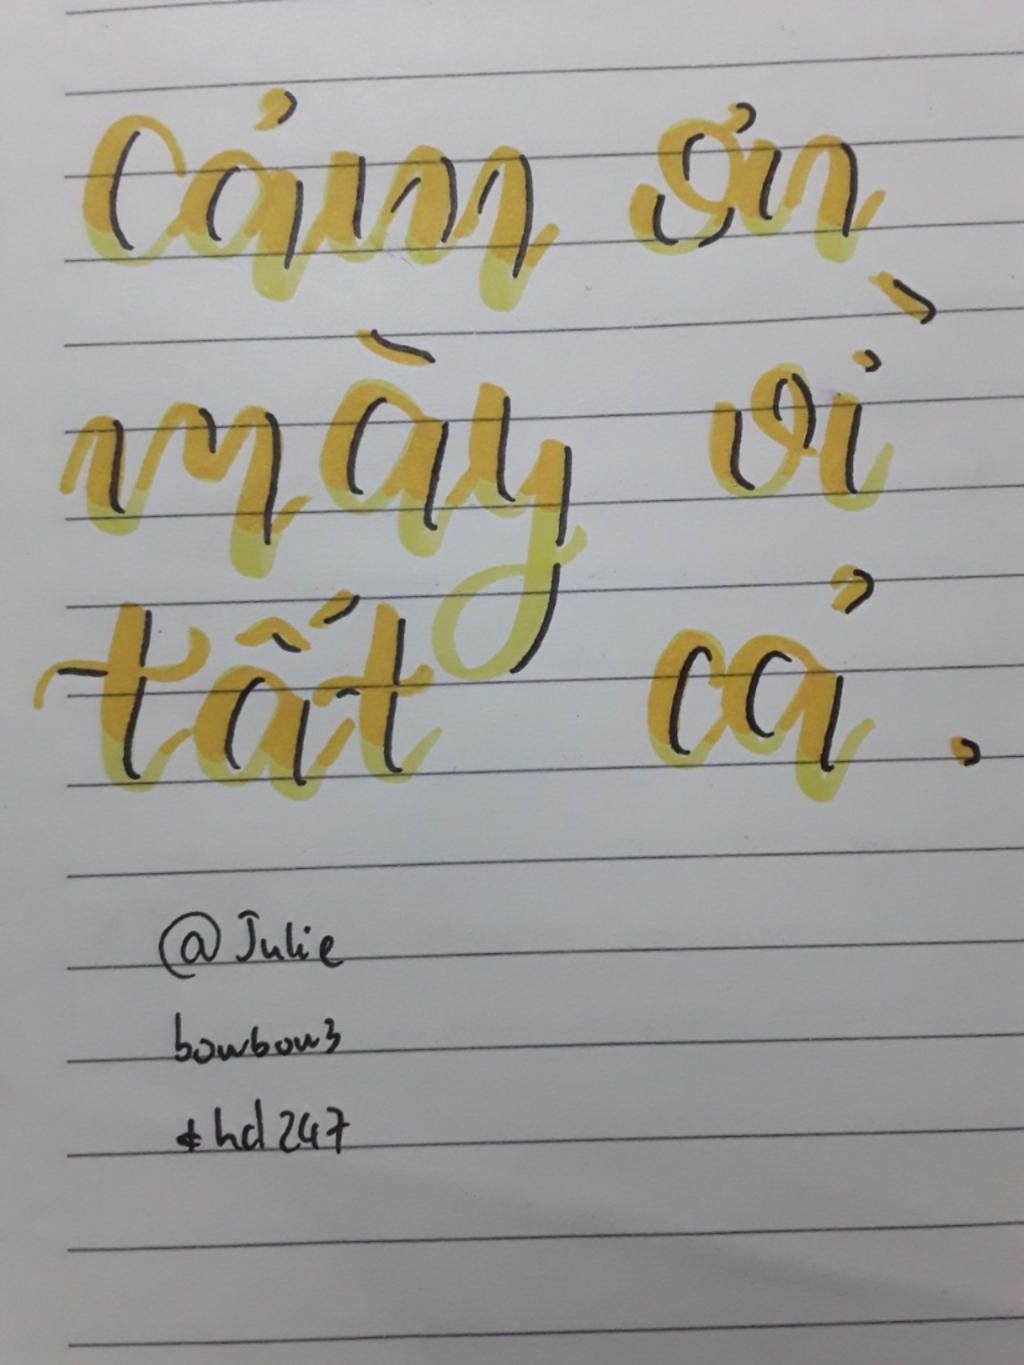 Cảm ơn
mày vì
tất cả.
@Julie
bowbow3
&hd247